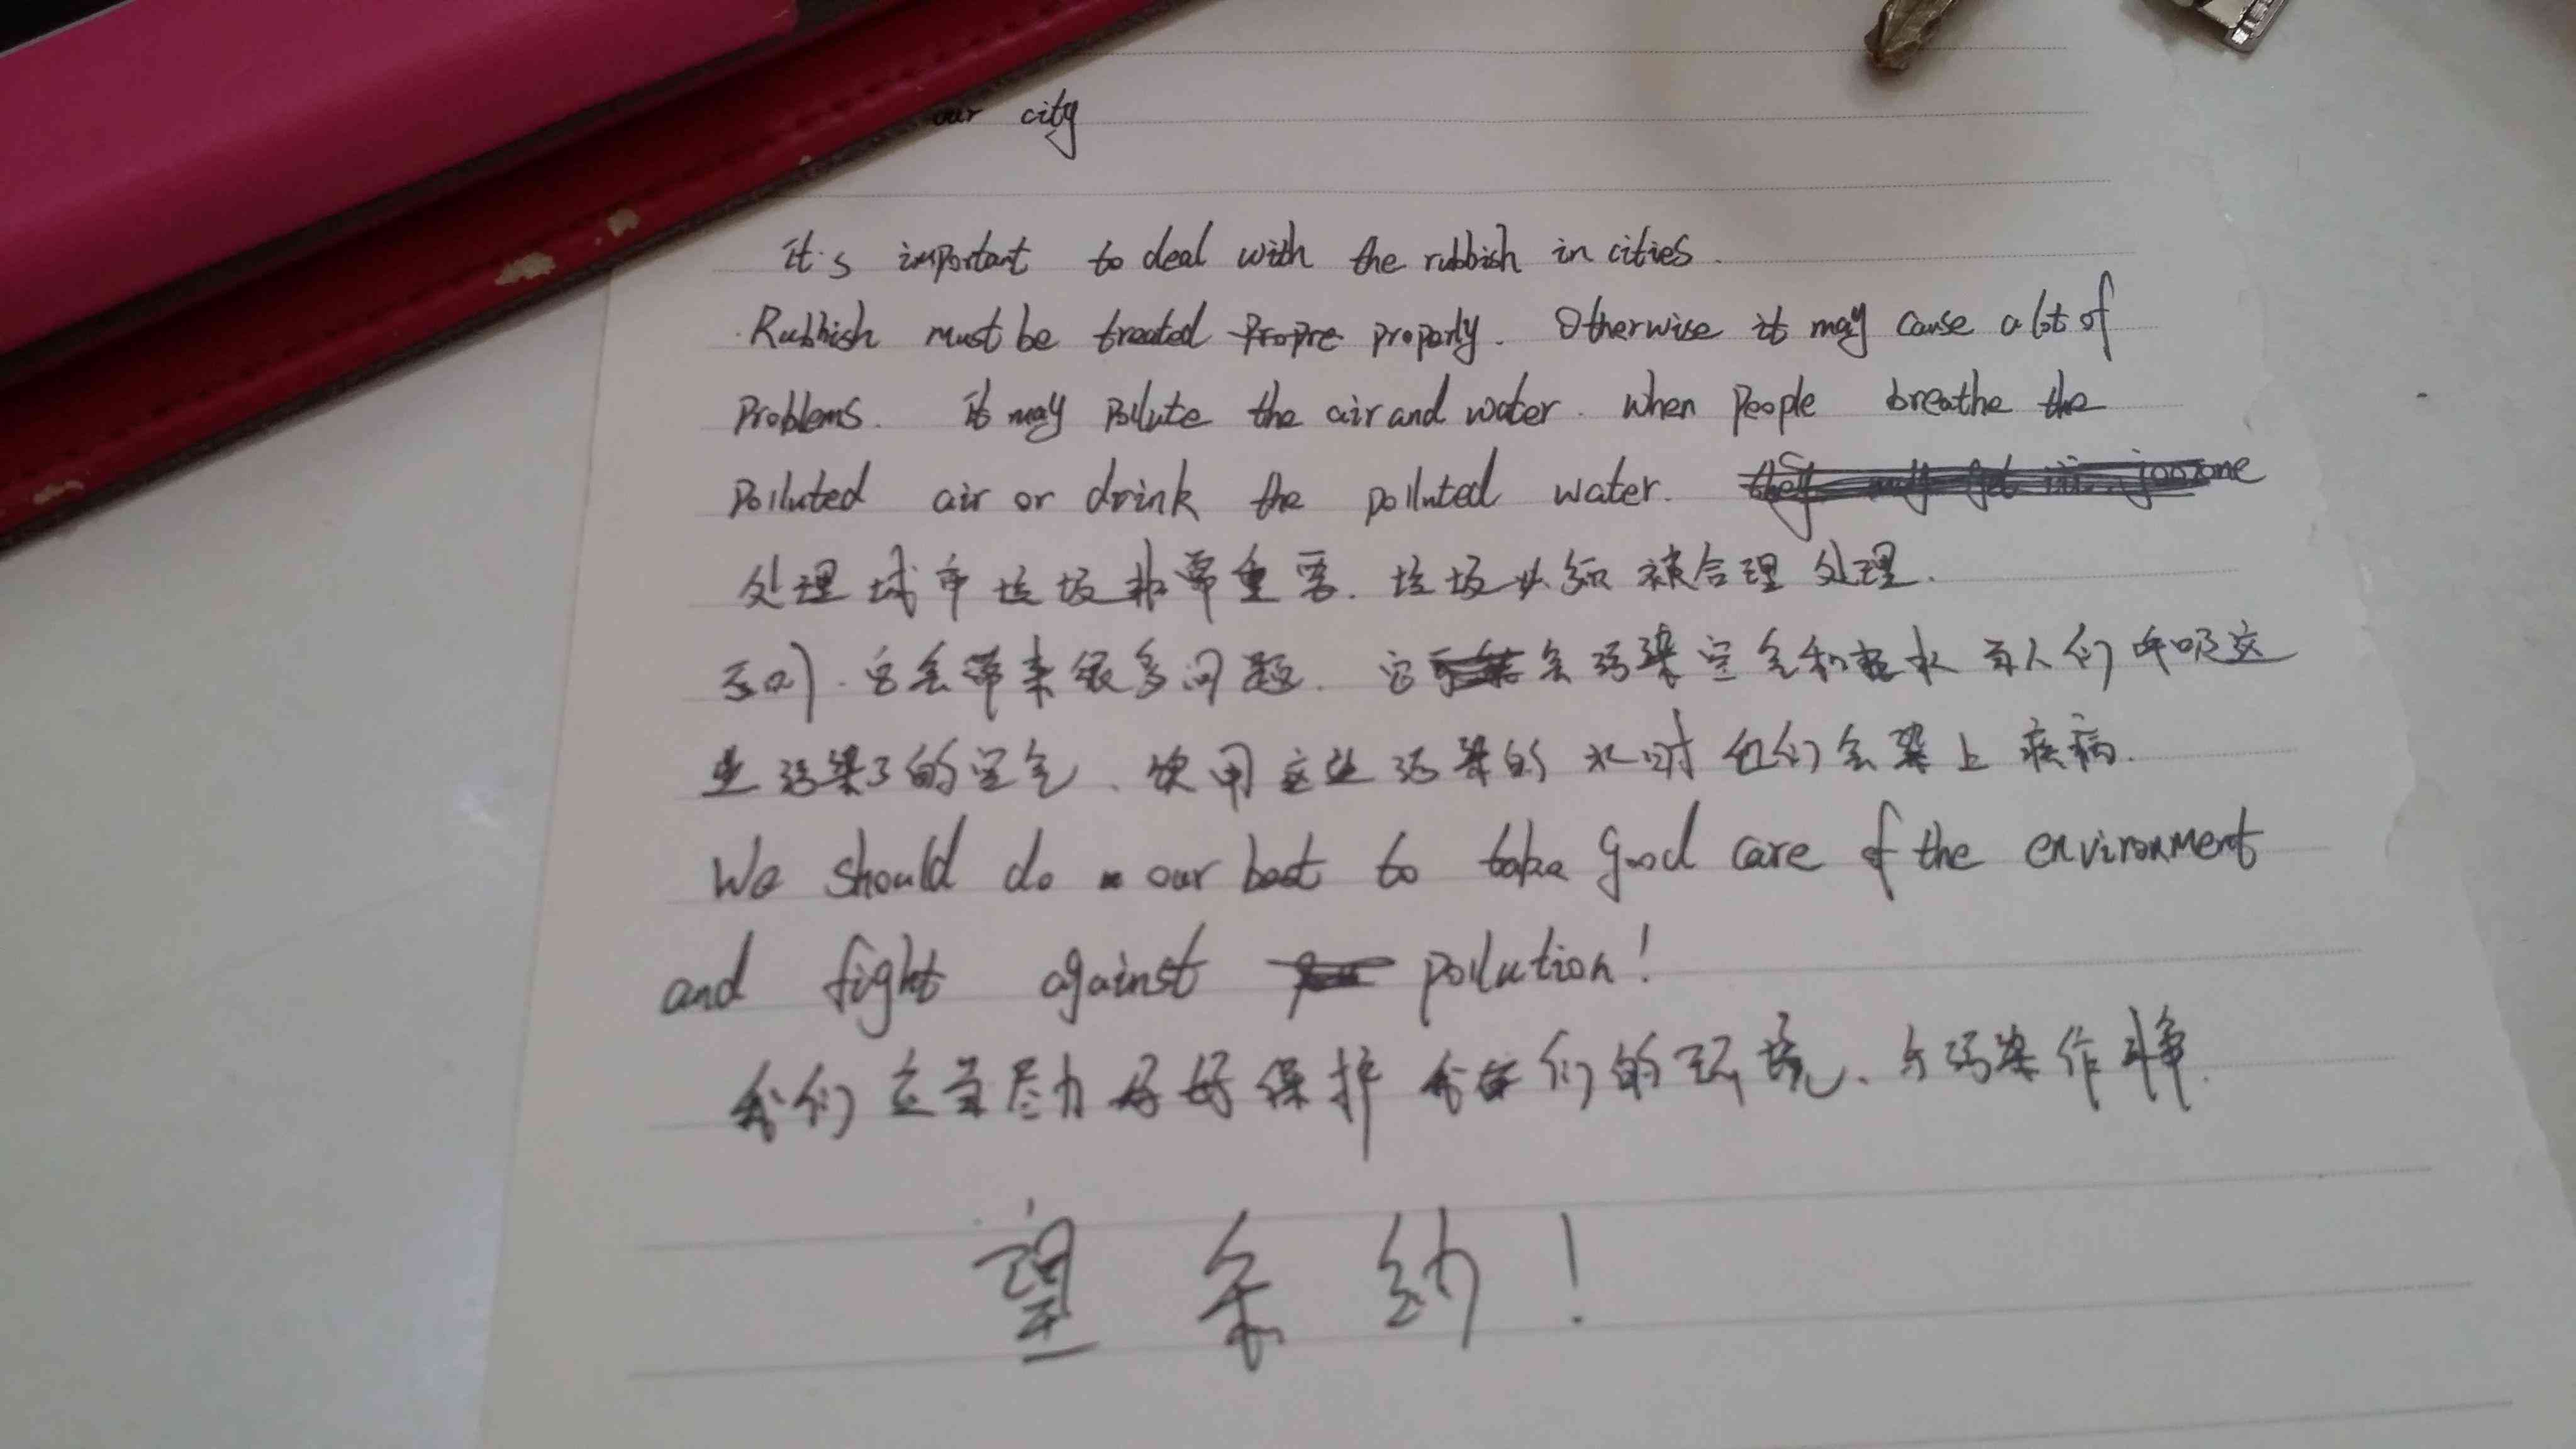 our city
It's important to deal with the rubbish in cities.
Rubbish must be treated Propre properly. Otherwise it may cause a lot of
Problems. It may Pollute the air and water. When People breathe the
Polluted air or drink the polluted water.
处理城市垃圾非常重要. 垃圾必须被合理处理.
否则. 它会带来很多问题. 它会污染空气和水 当人们呼吸这
些污染了的空气、饮用这些污染的水时 他们会染上疾病.
We should do our best to take good care of the environment
and fight against pollution!
我们应当尽力好好保护我们的环境、与污染作斗争.
望采纳!